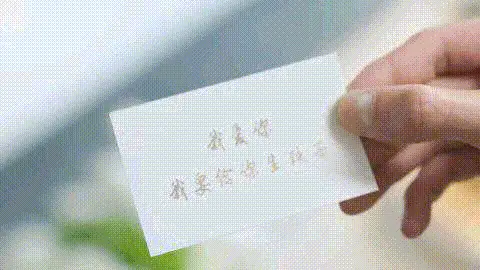 我爱你
我要给你生孩子